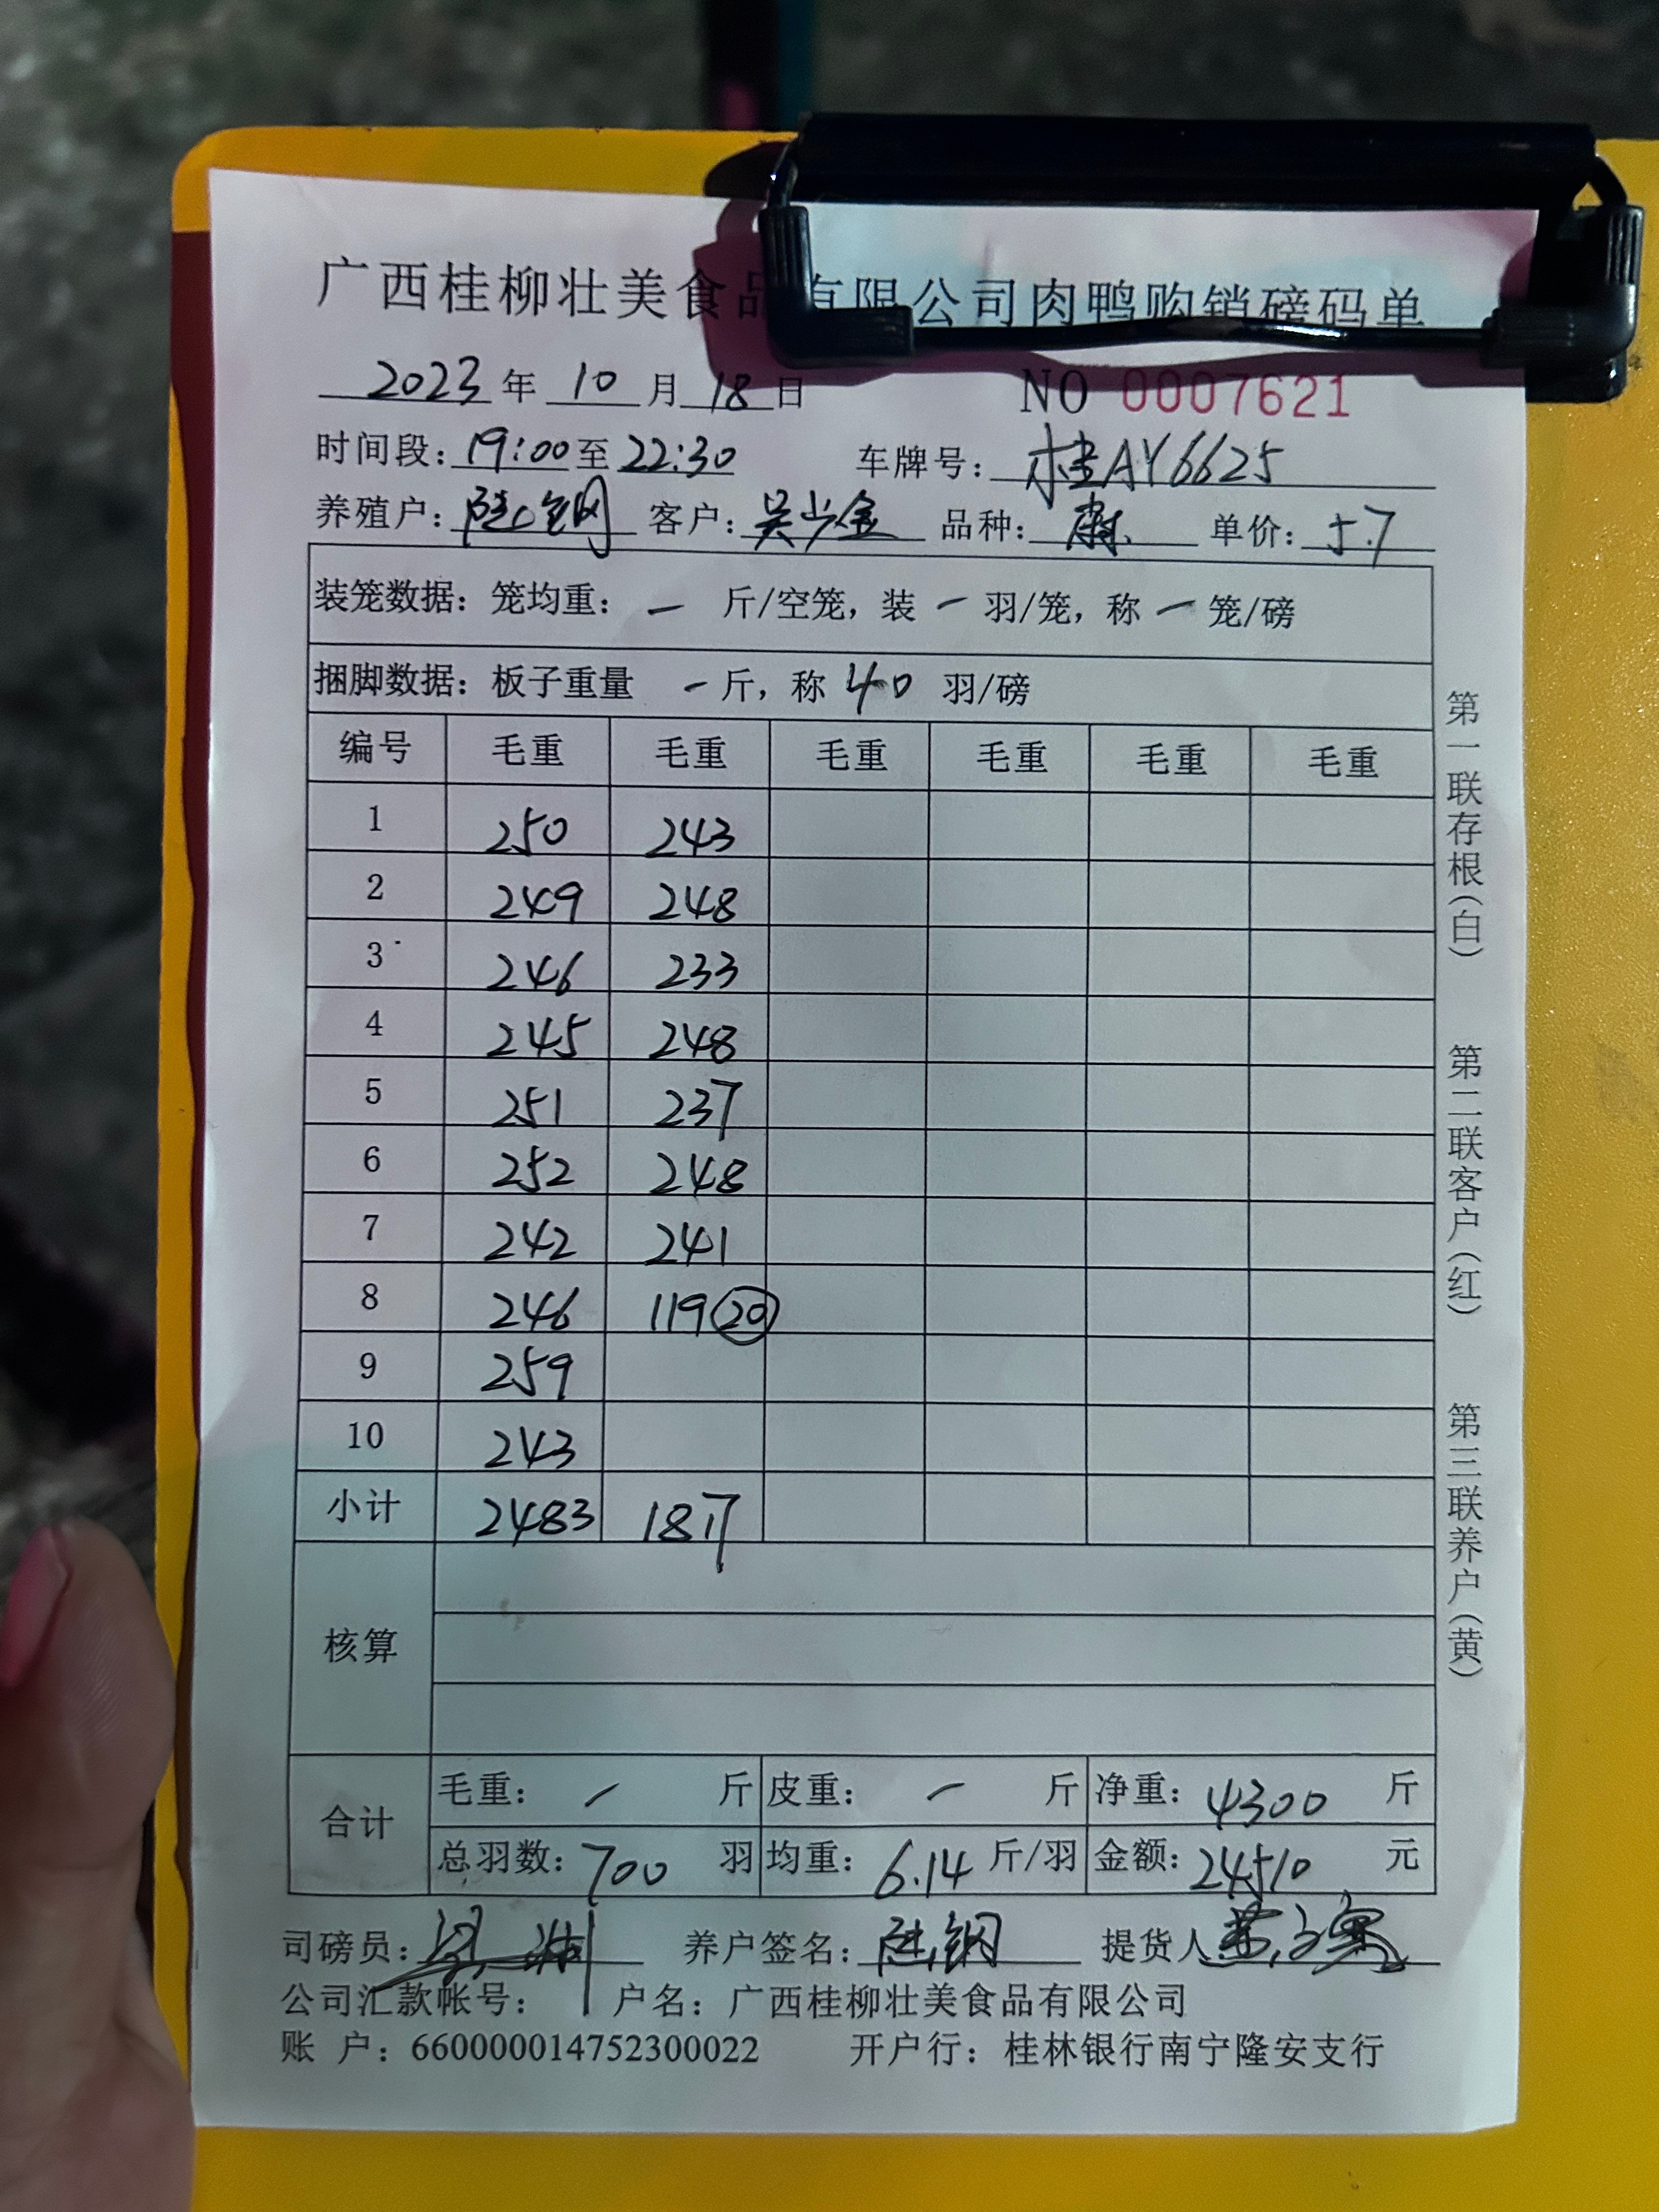 广西桂柳壮美食品有限公司肉鸭购销磅码单
2023年 10月 18日 NO 0007621
时间段：19:00至22:30 车牌号：桂AY6625
养殖户： 客户：吴少金 品种： 单价：5.7
装笼数据：笼均重：一 斤/空笼，装 一 羽/笼，称 一 笼/磅
捆脚数据：板子重量 一 斤，称 40 羽/磅
编号 毛重 毛重 毛重 毛重 毛重 毛重
1 250 243
2 249 248
3 246 233
4 245 248
5 251 237
6 252 248
7 242 241
8 246 119 20
9 259
10 243
小计 2483 1817
核算
合计 毛重： 一 斤 皮重： 一 斤 净重：4300 斤
总羽数：700 羽 均重：6.14 斤/羽 金额：24510 元
司磅员： 养户签名： 提货人
公司汇款帐号： 户名：广西桂柳壮美食品有限公司
账 户：660000014752300022 开户行：桂林银行南宁隆安支行
第一联存根（白） 第二联客户（红） 第三联养户（黄）